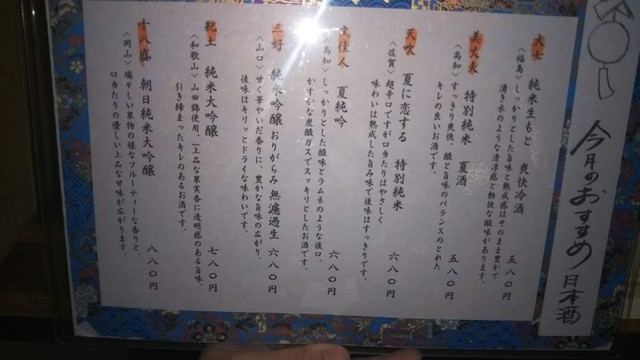 今月のおすすめ 日本酒
大七 純米生もと 爽快冷酒 五八〇円
〈福島〉しっかりとした旨味と熟成感はそのまま豊かで
湧き水のような清涼感と軽快な酸味があります。
美丈夫 特別純米 夏酒 五八〇円
〈高知〉すっきり爽快、酸と旨味のバランスのとれた
キレの良いお酒です。
天吹 夏に恋する 特別純米 六八〇円
〈佐賀〉超辛口ですが口当たりはやさしく
味わいは熟成した旨み味で後味はすっきりです。
文佳人 夏純吟 六八〇円
〈高知〉しっかりとした酸味とラムネのような後口、
かすかな炭酸ガスでスッキリとしたお酒です。
三好 純米吟醸 おりがらみ 無濾過生 六八〇円
〈山口〉甘く華やいだ香りに、豊かな旨味の広がり、
後味はキリッとドライな味わいです。
紀土 純米大吟醸 七八〇円
〈和歌山〉山田錦使用、上品な果実香に透明感のある旨味、
引き締まったキレのあるお酒です。
十八盛 朝日純米大吟醸 八八〇円
〈岡山〉瑞々しい果物の様なフルーティーな香りと、
口当たりの優しい上品な甘味が広がります。